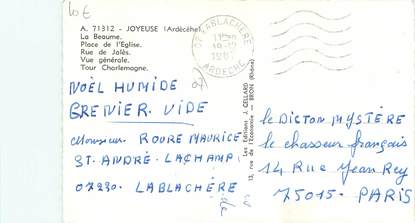 10 €
A. 71312 - JOYEUSE (Ardèche)
La Beaume.
Place de l'Eglise.
Rue de Jalès.
Vue générale.
Tour Charlemagne.
LABLACHERE
ARDECHE
NOËL HUMIDE
GRENIER VIDE
Monsieur ROURE MAURICE
ST. ANDRÉ. LACHAMP
07230. LABLACHÈRE
Les Editions J. CELLARD
13, rue de l'Economie — BRON (Rhône)
le DICTON MYSTÈRE
le chasseur français
14 Rue Jean Rey
75015. PARIS